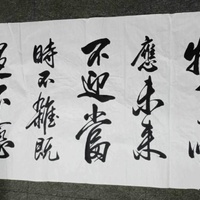 應未來
不迎當
時不雜既
不戀